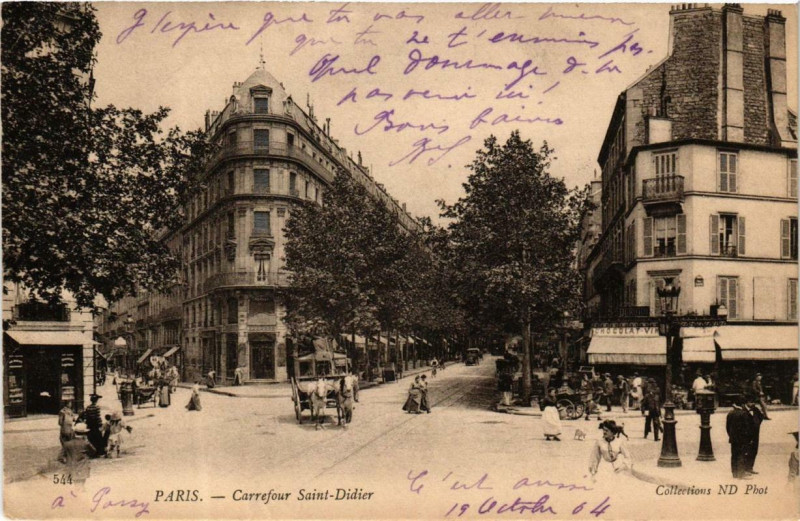 J'espère que tu vas aller mieux
que tu ne t'ennuies pas
Quel dommage de ne
pas venir ici!
Bons baisers
CHOCOLAT VIN
544
à Passy
PARIS. — Carrefour Saint-Didier
Collections ND Phot
C'est aussi
19 Octobre 04